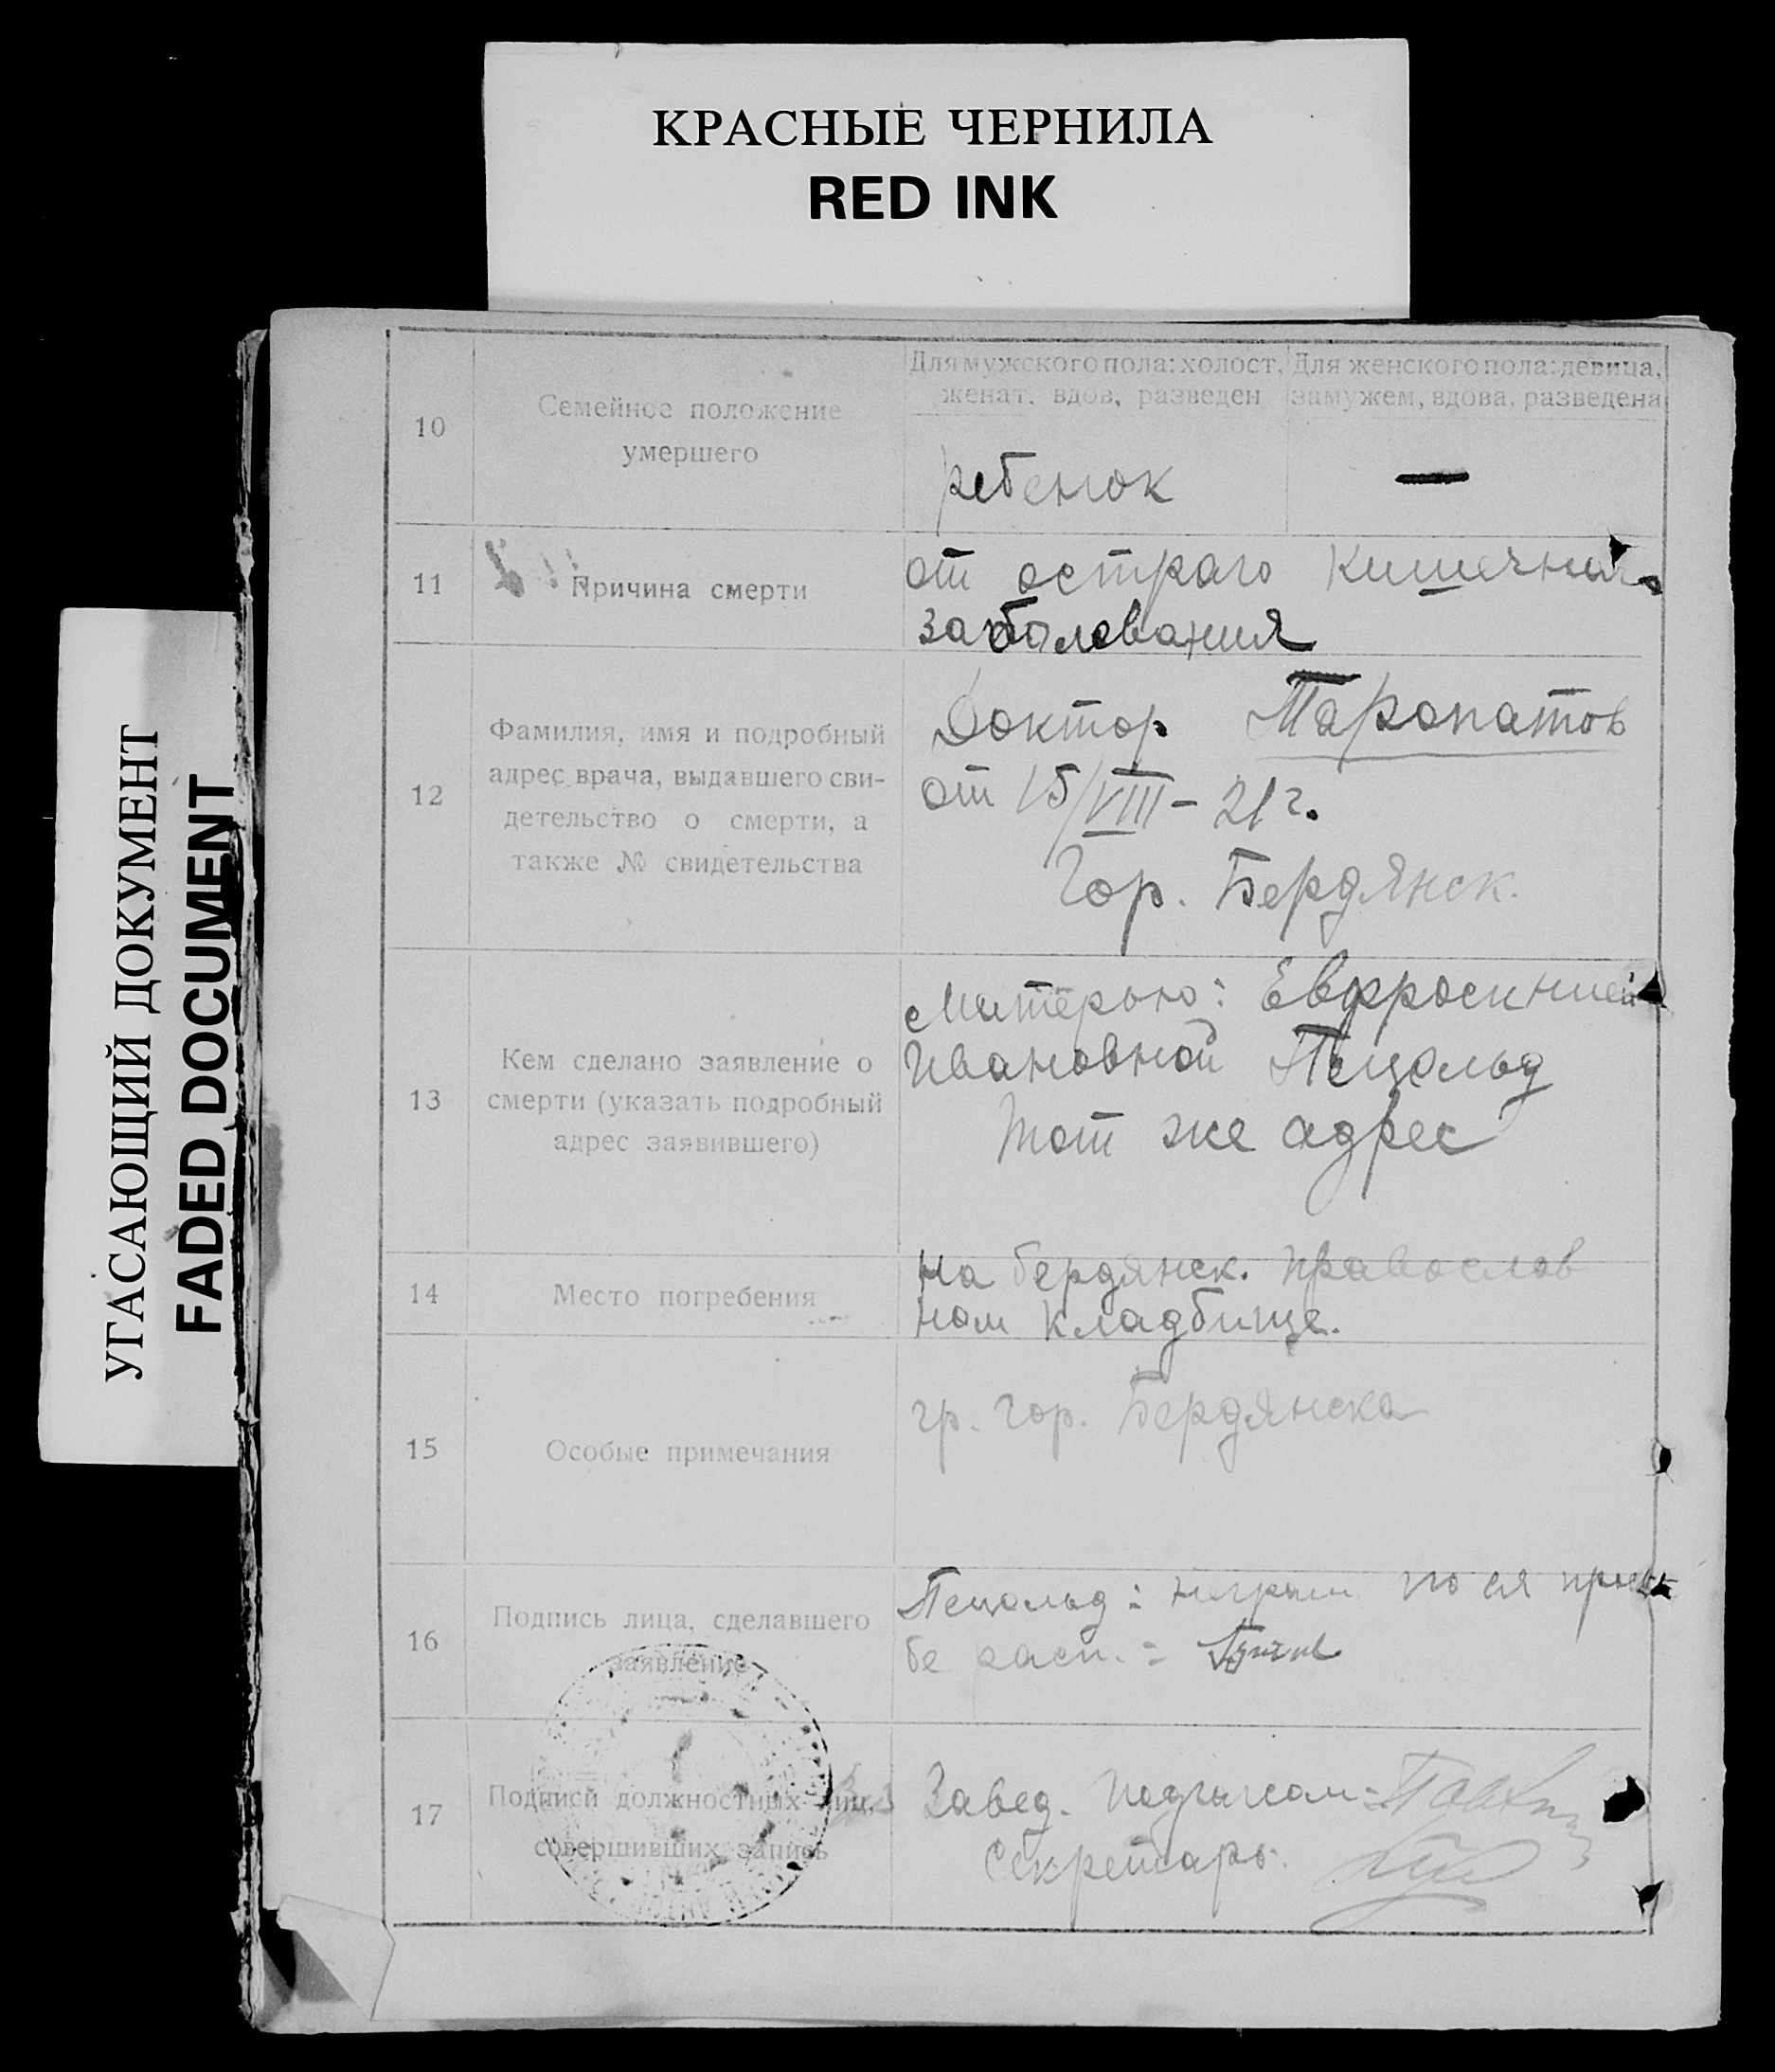 КРАСНЫЕ ЧЕРНИЛА
RED INK
УГАСАЮЩИЙ ДОКУМЕНТ
FADED DOCUMENT
10
Семейное положение
умершего
Для мужского пола: холост,
женат, вдов, разведен
Для женского пола: девица,
замужем, вдова, разведена
ребенок
—
11
Причина смерти
от остраго кишечнаго
заболевания
12
Фамилия, имя и подробный
адрес врача, выдавшего сви-
детельство о смерти, а
также № свидетельства
Доктор Таропатов
от 15/VIII – 21 г.
Гор. Бердянск.
13
Кем сделано заявление о
смерти (указать подробный
адрес заявившего)
Матерью: Евфросинией
Ивановной Пецольд
тот же адрес
14
Место погребения
на бердянск. православ
ном кладбище.
15
Особые примечания
гр. гор. Бердянска
16
Подпись лица, сделавшего
заявление
Пецольд: неграм по ея прось
бе расп. =
17
Подписи должностных лиц,
совершивших запись
Завед. Подзагсом =
Секретарь.